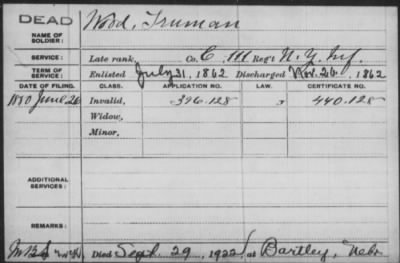 DEAD
Wood, Truman
NAME OF SOLDIER:
SERVICE: Late rank, Co. C, 111 Reg't N. Y. Inf.
TERM OF SERVICE: Enlisted July 31, 1862 Discharged Nov. 26, 1862
DATE OF FILING. CLASS. APPLICATION NO. LAW. CERTIFICATE NO.
1880 June 26 Invalid, 396.128 440.128
Widow,
Minor,
ADDITIONAL SERVICES:
REMARKS:
Died Sept. 29, 1922, at Bartley, Nebr